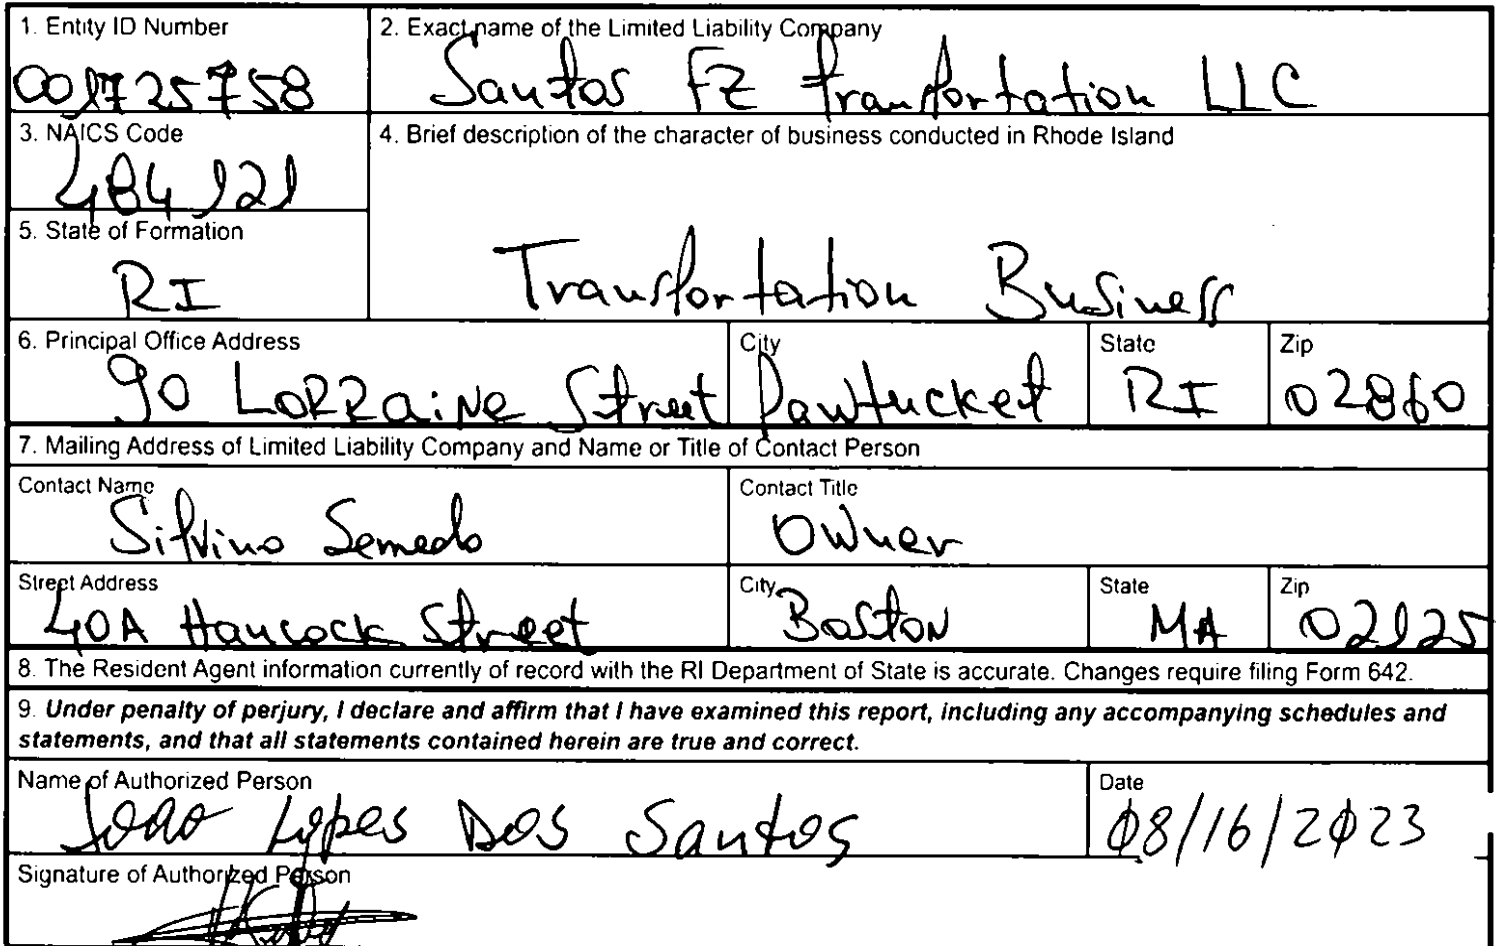 1. Entity ID Number
001725758
2. Exact name of the Limited Liability Company
Santos FZ Transportation LLC
3. NAICS Code
484121
4. Brief description of the character of business conducted in Rhode Island
Transportation Business
5. State of Formation
RI
6. Principal Office Address
90 LORRaiNe Street
City
Pawtucket
State
RI
Zip
02860
7. Mailing Address of Limited Liability Company and Name or Title of Contact Person
Contact Name
Silvino Semedo
Contact Title
Owner
Street Address
40A Hancock Street
City
Boston
State
MA
Zip
02125
8. The Resident Agent information currently of record with the RI Department of State is accurate. Changes require filing Form 642.
9. Under penalty of perjury, I declare and affirm that I have examined this report, including any accompanying schedules and
statements, and that all statements contained herein are true and correct.
Name of Authorized Person
Joao Lopes Dos Santos
Date
08/16/2023
Signature of Authorized Person